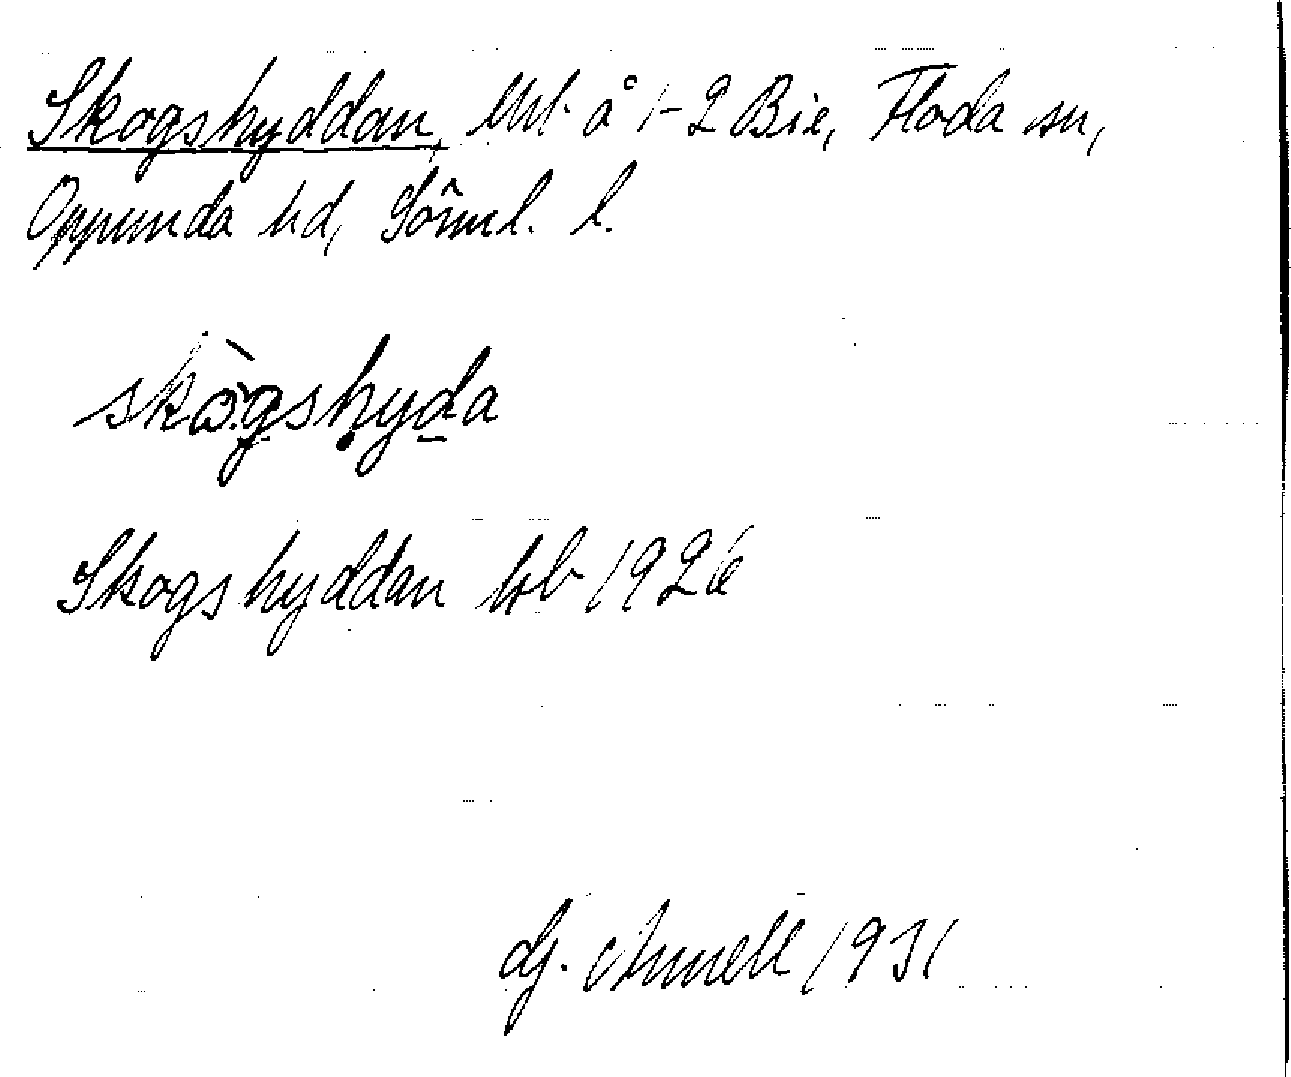 Skogshyddan, lht å 1-2 Bie, Floda sn,
Oppunda hd, Sörml. l.
skògshyda
Skogshyddan kb 1926
1931